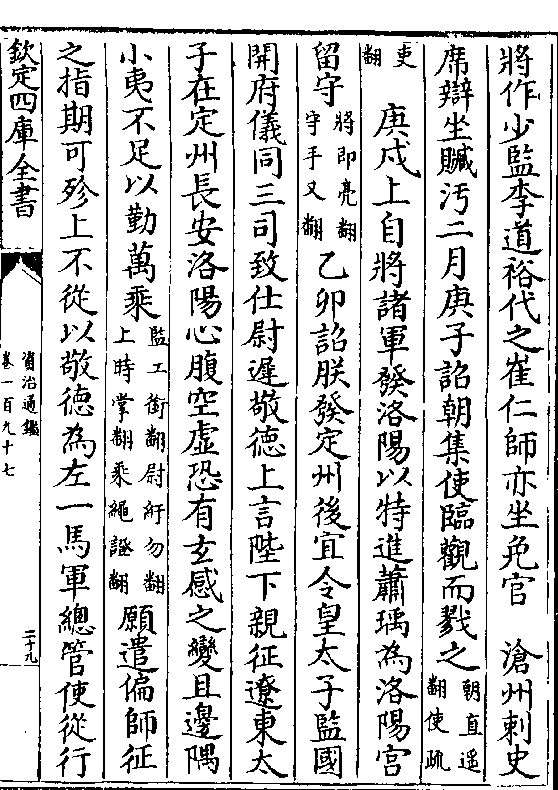 將作少監李道裕代之崔仁師亦坐免官　滄州刺史
席辯坐贓汚二月庚子詔朝集使臨觀而戮之朝直遥翻使疏
吏翻　庚戌上自將諸軍發洛陽以特進蕭瑀為洛陽宮
留守將即亮翻守手又翻　乙卯詔朕發定州後宜令皇太子監國
開府儀同三司致仕尉遲敬德上言陛下親征遼東太
子在定州長安洛陽心腹空虛恐有玄感之變且邊隅
小夷不足以勤萬乘監工銜翻尉紆勿翻上時掌翻乘繩證翻　願遣偏師征
之指期可殄上不從以敬德為左一馬軍總管使從行
欽定四庫全書
資治通鑑
卷一百九十七
二十九